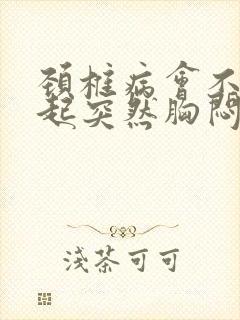 頸椎病會不
起突然胸悶
淺茶可可